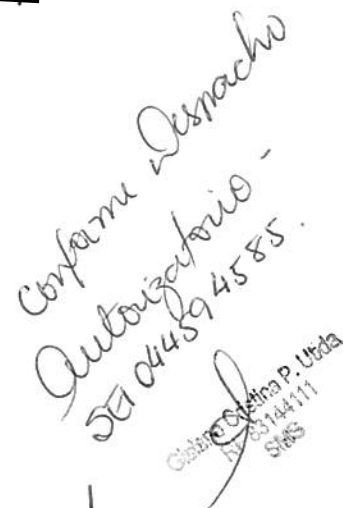 Conforme Despacho
Autorizatorio -
SEI 044594585.
Cristina P.
RF 83144111
SMS